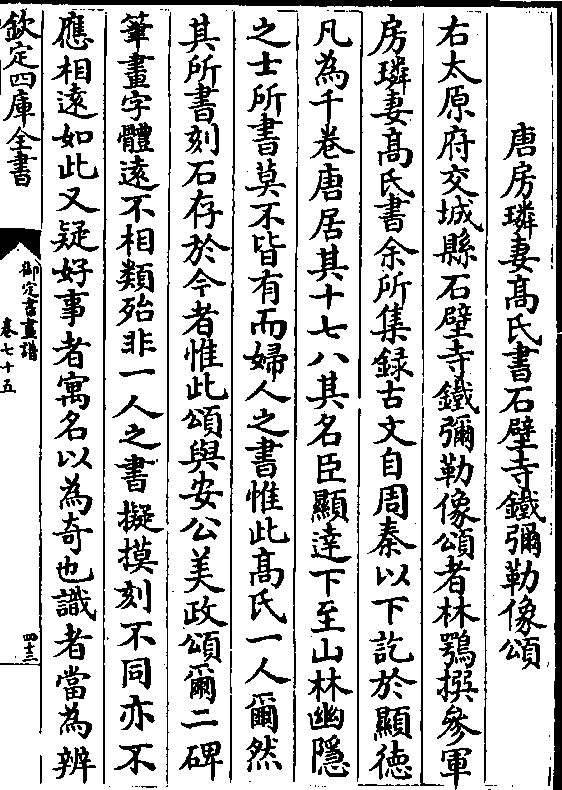 唐房璘妻髙氏書石壁寺鐵彌勒像頌
右太原府交城縣石壁寺鐵彌勒像頌者林鶚撰參軍
房璘妻髙氏書余所集録古文自周秦以下訖於顯德
凡為千卷唐居其十七八其名臣顯達下至山林幽隱
之士所書莫不皆有而婦人之書惟此髙氏一人爾然
其所書刻石存於今者惟此頌與安公美政頌爾二碑
筆畫字體遠不相類殆非一人之書擬摸刻不同亦不
應相逺如此又疑好事者寓名以為奇也識者當為辨
欽定四庫全書
御定書畫譜
卷七十五
四十三